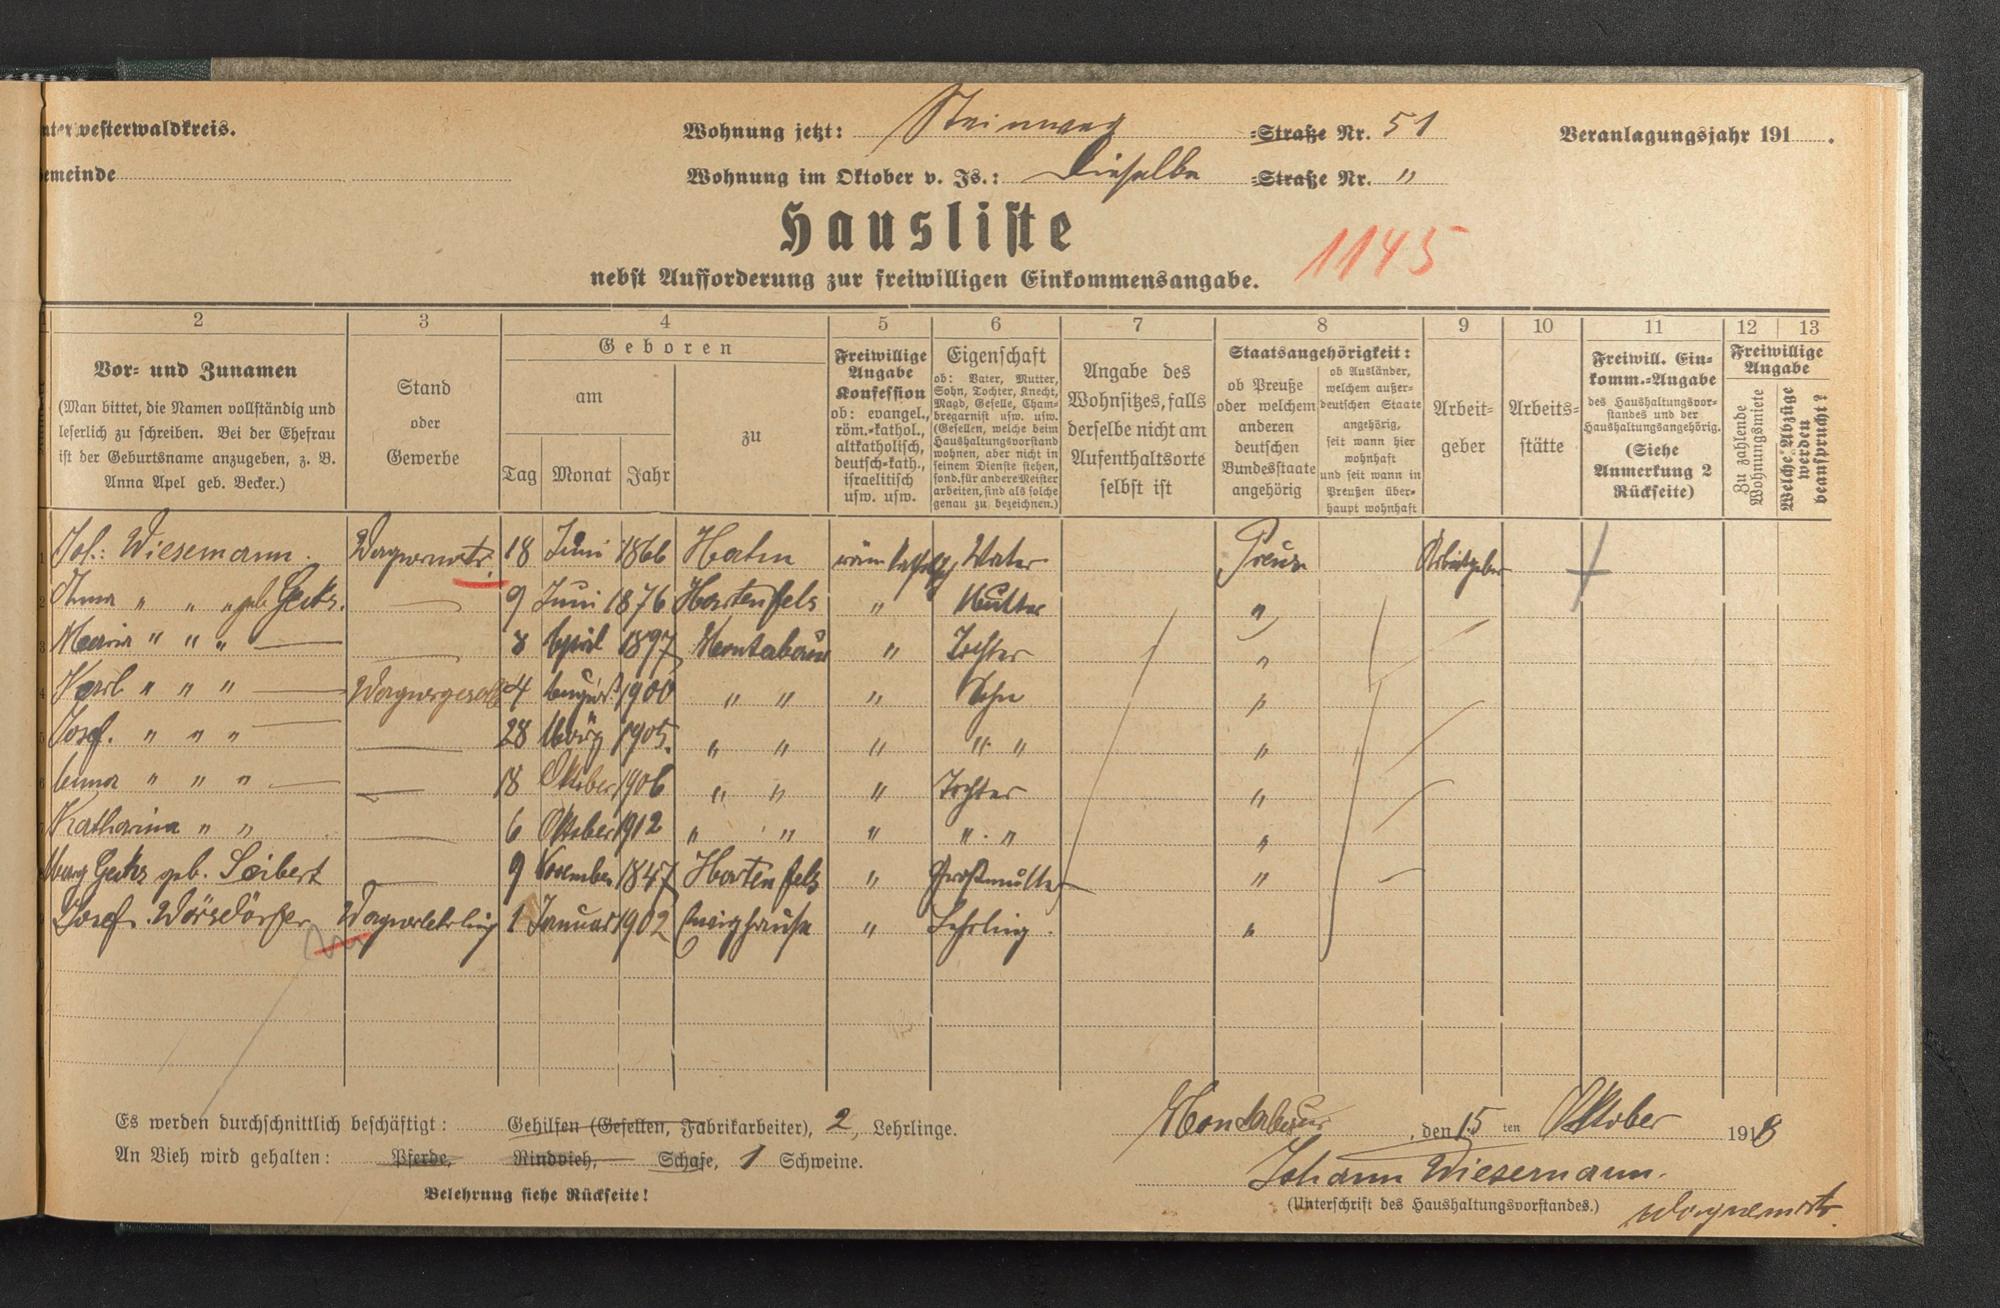 nterwesterwaldkreis.
Wohnung jetzt: Steinweg =Straße Nr. 51
Veranlagungsjahr 191 .
emeinde
Wohnung im Oktober v. Js.: Dieselbe =Straße Nr. "
Hausliste
1145
nebst Aufforderung zur freiwilligen Einkommensangabe.
2 3 4 5 6 7 8 9 10 11 12 13
Vor- und Zunamen
(Man bittet, die Namen vollständig und
leserlich zu schreiben. Bei der Ehefrau
ist der Geburtsname anzugeben, z. B.
Anna Apel geb. Becker.)
Stand
oder
Gewerbe
Geboren
am
Tag Monat Jahr
zu
Freiwillige
Angabe
Konfession
ob: evangel.,
röm.-kathol.,
altkatholisch,
deutsch-kath.,
israelitisch
usw. usw.
Eigenschaft
ob: Vater, Mutter,
Sohn, Tochter, Knecht,
Magd, Geselle, Cham-
bregarnist usw. usw.
(Gesellen, welche beim
Haushaltungsvorstand
wohnen, aber nicht in
seinem Dienste stehen,
sond. für andere Meister
arbeiten, sind als solche
genau zu bezeichnen.)
Angabe des
Wohnsitzes, falls
derselbe nicht am
Aufenthaltsorte
selbst ist
Staatsangehörigkeit:
ob Preuße
oder welchem
anderen
deutschen
Bundesstaate
angehörig
ob Ausländer,
welchem außer-
deutschen Staate
angehörig,
seit wann hier
wohnhaft
und seit wann in
Preußen über-
haupt wohnhaft
Arbeit-
geber
Arbeits-
stätte
Freiwill. Ein-
komm.-Angabe
des Haushaltungsvor-
standes und der
Haushaltungsangehörig.
(Siehe
Anmerkung 2
Rückseite)
Freiwillige
Angabe
Zu zahlende
Wohnungsmiete
Welche Abzüge
werden
beansprucht?
1 Joh.: Wiesemann. Wagnermstr. 18 Juni 1866 Hahn röm. kathol. Vater Preuße Arbeitgeber
2 Anna " " " geb. Gerks. — 9 Juni 1876 Hartenfels " Mutter "
3 Maria " " " — — 8 April 1897 Montabaur " Tochter "
4 Karl " " " — Wagnergesell 4 August 1900 " " " Sohn "
5 Josef. " " " — — 28 März 1905. " " " " " "
6 Anna " " " — — 18 Oktober 1906 " " " Tochter "
Katharina " " — 6 Oktober 1912 " " " " " "
Gerks geb. Seibert — 9 November 1847 Hartenfels " Großmutter "
Josef Wörsdörfer Wagnerlehrling 1 Januar 1902 " Lehrling. "
Es werden durchschnittlich beschäftigt: Gehilfen (Gesellen, Fabrikarbeiter), 2, Lehrlinge.
Montabaur, den 15 ten Oktober 1918
An Vieh wird gehalten: Pferde, Rindvieh, Schafe, 1 Schweine.
Johann Wiesemann.
Belehrung siehe Rückseite!
(Unterschrift des Haushaltungsvorstandes.)
Wagnermstr.